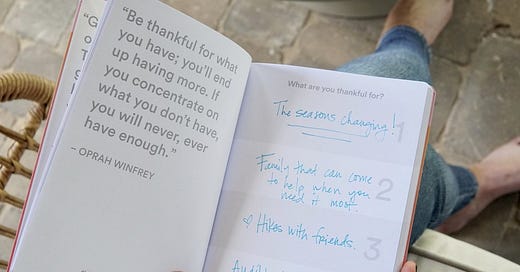 "G
o
T
"Be thankful for what
you have; you'll end
up having more. If
you concentrate on
what you don't have,
you will never, ever
have enough."
– OPRAH WINFREY
What are you thankful for?
The seasons changing!
1
Family that can come
to help when you
need it most.
2
♡ Hikes with friends.
3